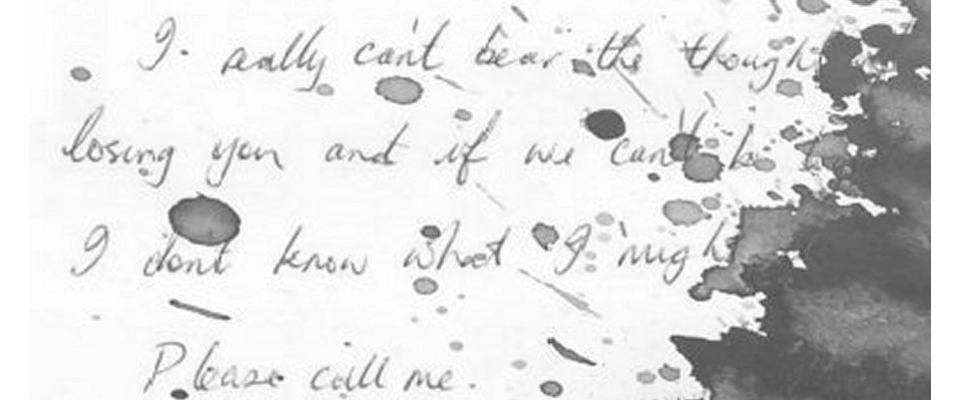 I really can't bear the though
losing you and if we can't b
I dont know what I migh
Please call me.